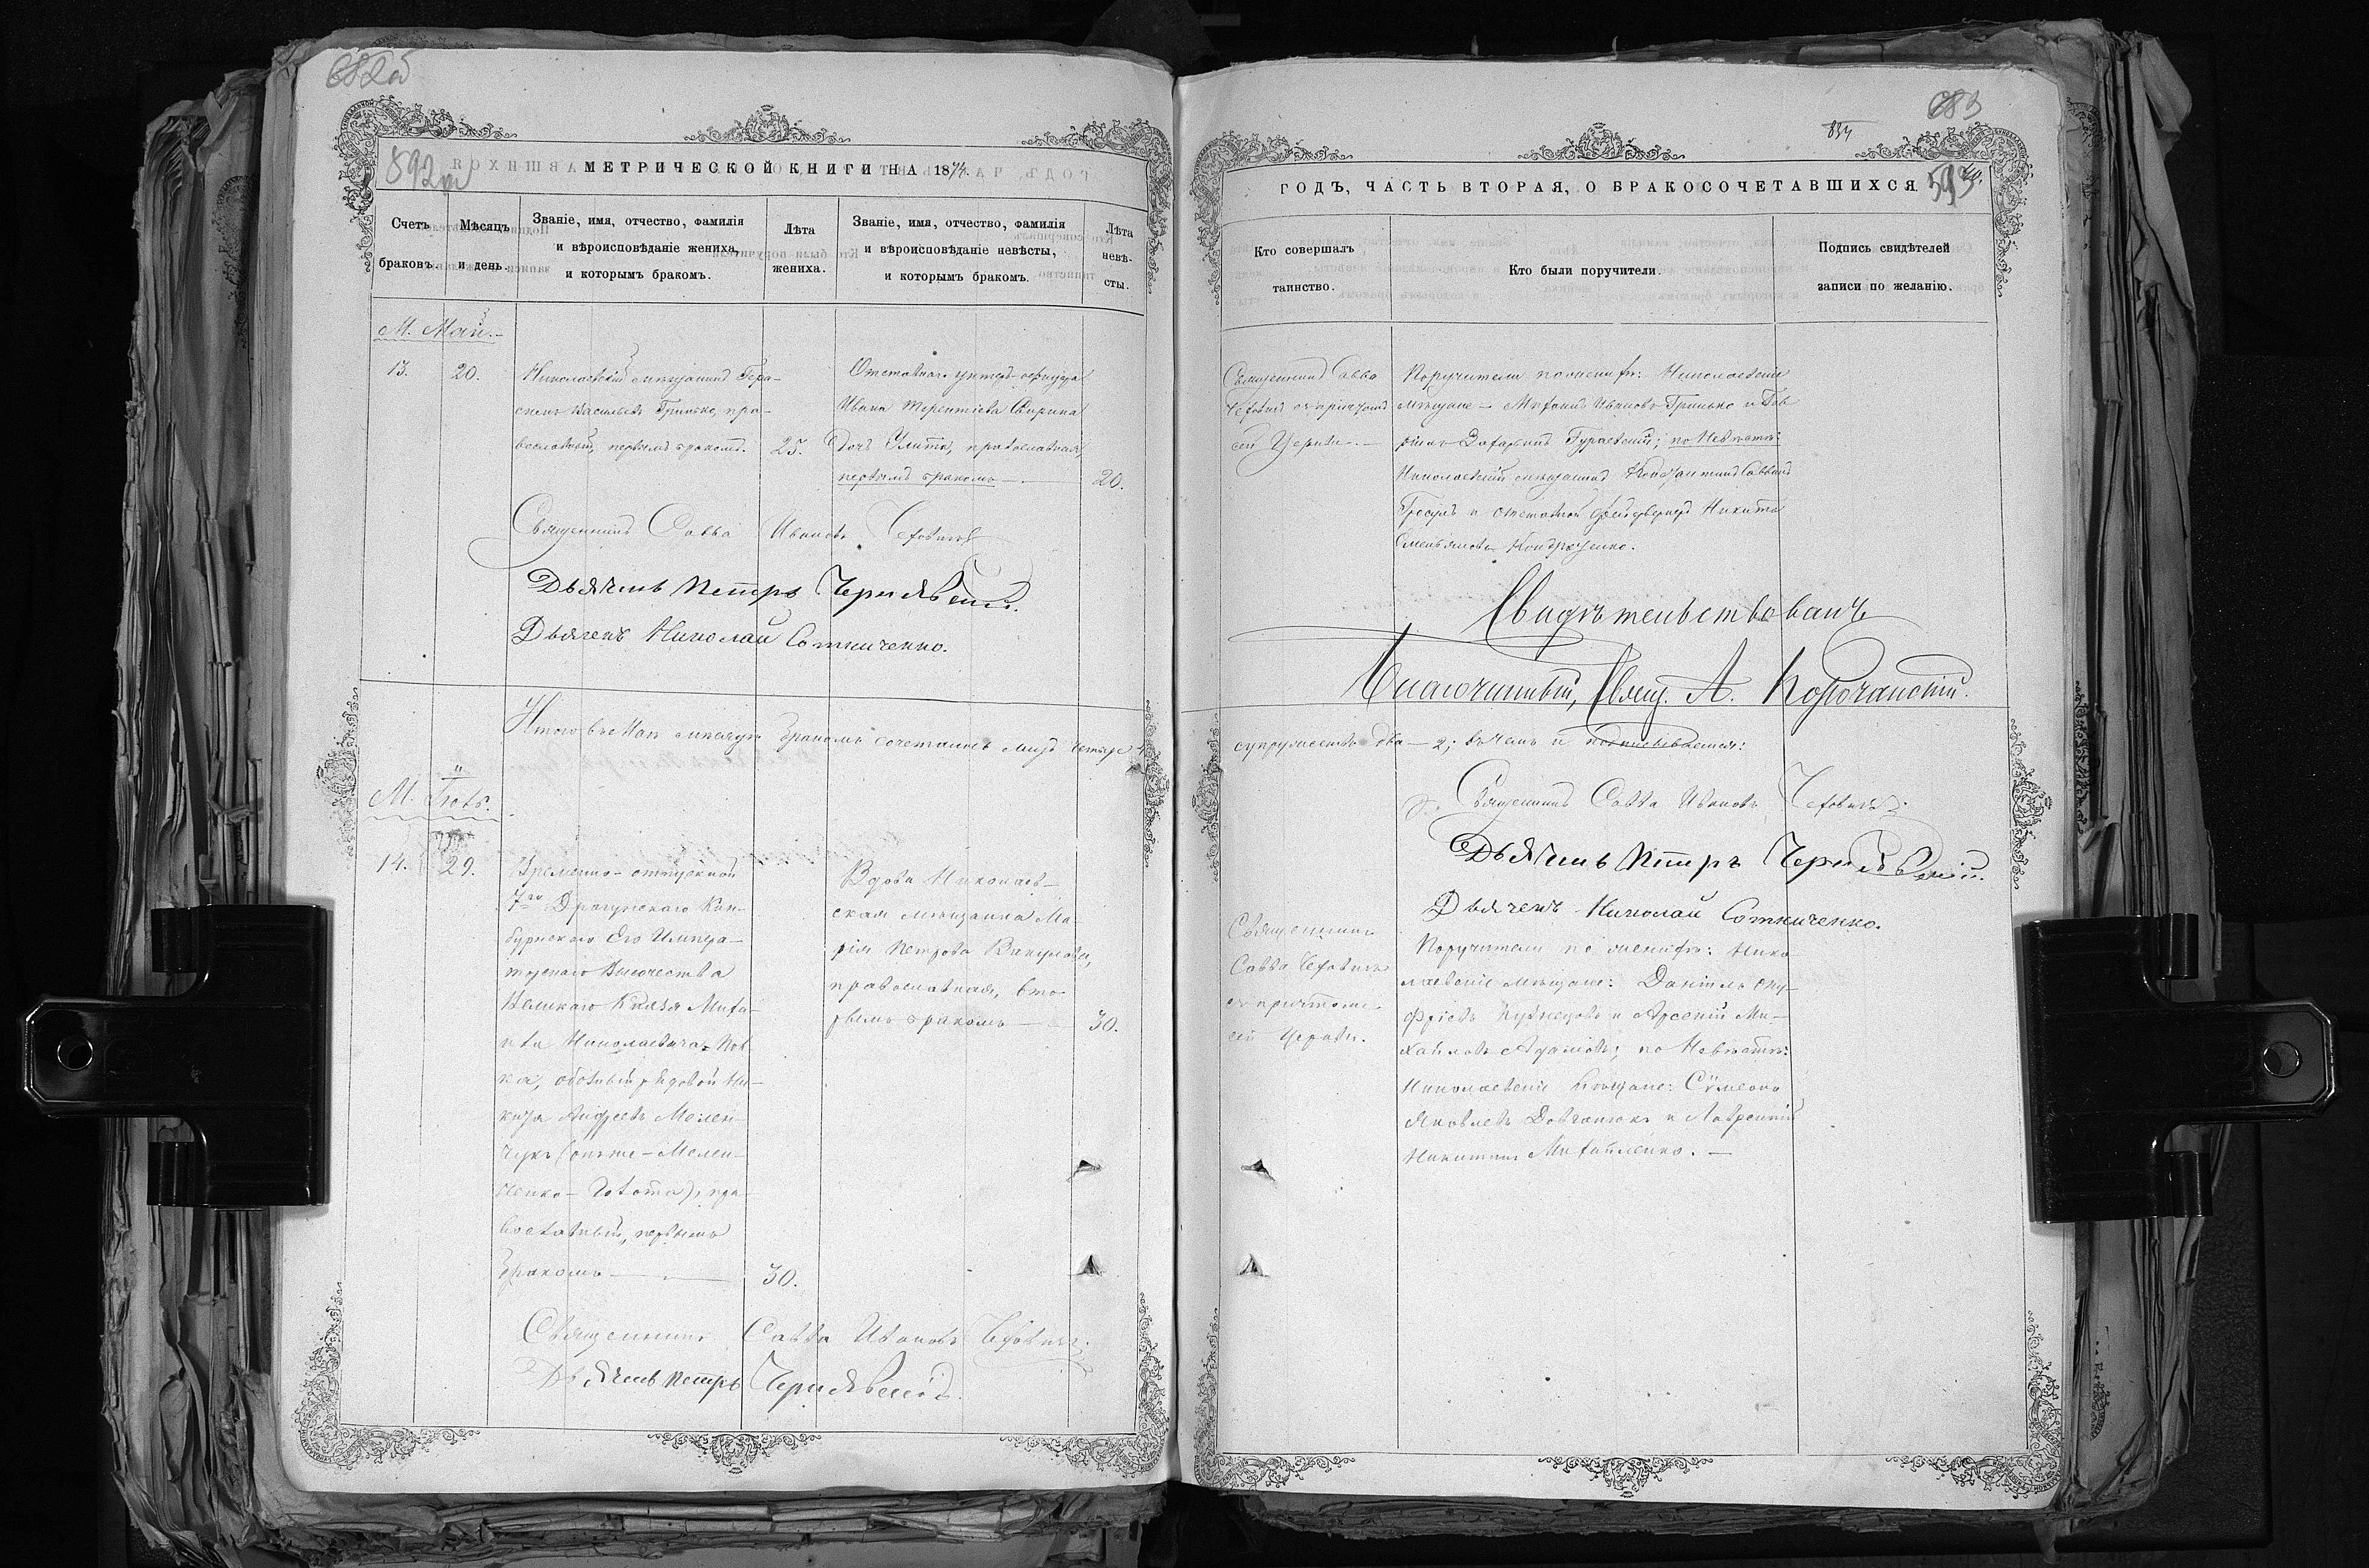 МЕТРИЧЕСКОЙ КНИГИ НА 1874.
Счетъ браковъ.
Мѣсяцъ и день.
Званіе, имя, отчество, фамилія и вѣроисповѣданіе жениха, и которымъ бракомъ.
Лѣта жениха.
Званіе, имя, отчество, фамилія и вѣроисповѣданіе невѣсты, и которымъ бракомъ.
Лѣта невѣсты.
М. Май.
13.
20.
Николаевскій мѣщанинъ Гера-
симъ Васильевъ Гринько, пра-
вославный, первымъ бракомъ.
25.
Отставнаго унтеръ-офицера
Ивана Терентіева Спирина
дочь Улита, православная,
первымъ бракомъ
20.
Священникъ Савва Ивановъ
Дьячекъ Петръ Чернявскій.
Дьячекъ Николай Сотниченко.
Итого въ Маѣ мѣсяцѣ бракомъ сочеталось лицъ четыре 4
14.
29.
Временно-отпускной
7го Драгунскаго Кин-
бурнскаго Его Импера-
торскаго Высочества
Великаго Князя Миха-
ила Николаевича Пол-
ка, рядовой Ни-
кита Андреевъ Мелен-
чукъ (онъ же - Мелен-
ченко), пра-
вославный, первымъ
бракомъ
30.
Вдова Николаев-
ская мѣщанка Ма-
рія Петрова Вакулова,
православная, вто-
рымъ бракомъ
30.
Священникъ Савва Ивановъ
Дьячекъ Петръ Чернявскій.
ГОДЪ, ЧАСТЬ ВТОРАЯ, О БРАКОСОЧЕТАВШИХСЯ
Кто совершалъ таинство.
Кто были поручители.
Подпись свидѣтелей записи по желанію.
Священникъ Савва
съ причтомъ
сей Церкви.
Поручители по женихѣ: Николаевскіе
мѣщане - Ивановъ Гринько и
по невѣстѣ:
Николаевскій мѣщанинъ Константинъ Саввинъ
и отставной фейерверкеръ Никита
Кондраценко.
Свидѣтельствовалъ
Благочинный, Свящ. А. Корочанскій.
супружествъ два - 2; въ чемъ и подписываемся:
Священникъ Савва Ивановъ
Дьячекъ Петръ Чернявскій.
Дьячекъ Николай Сотниченко.
Священникъ
Савва
съ причтомъ
сей Церкви.
Поручители по женихѣ: Нико-
лаевскіе мѣщане: Даніилъ Ону-
фріевъ Кузнецовъ и Арсеній Ми-
хайловъ Адамовъ; по невѣстѣ:
Николаевскіе мѣщане: Сѵмеонъ
Яковлевъ и Лаврентій
Никитинъ Михайленко.